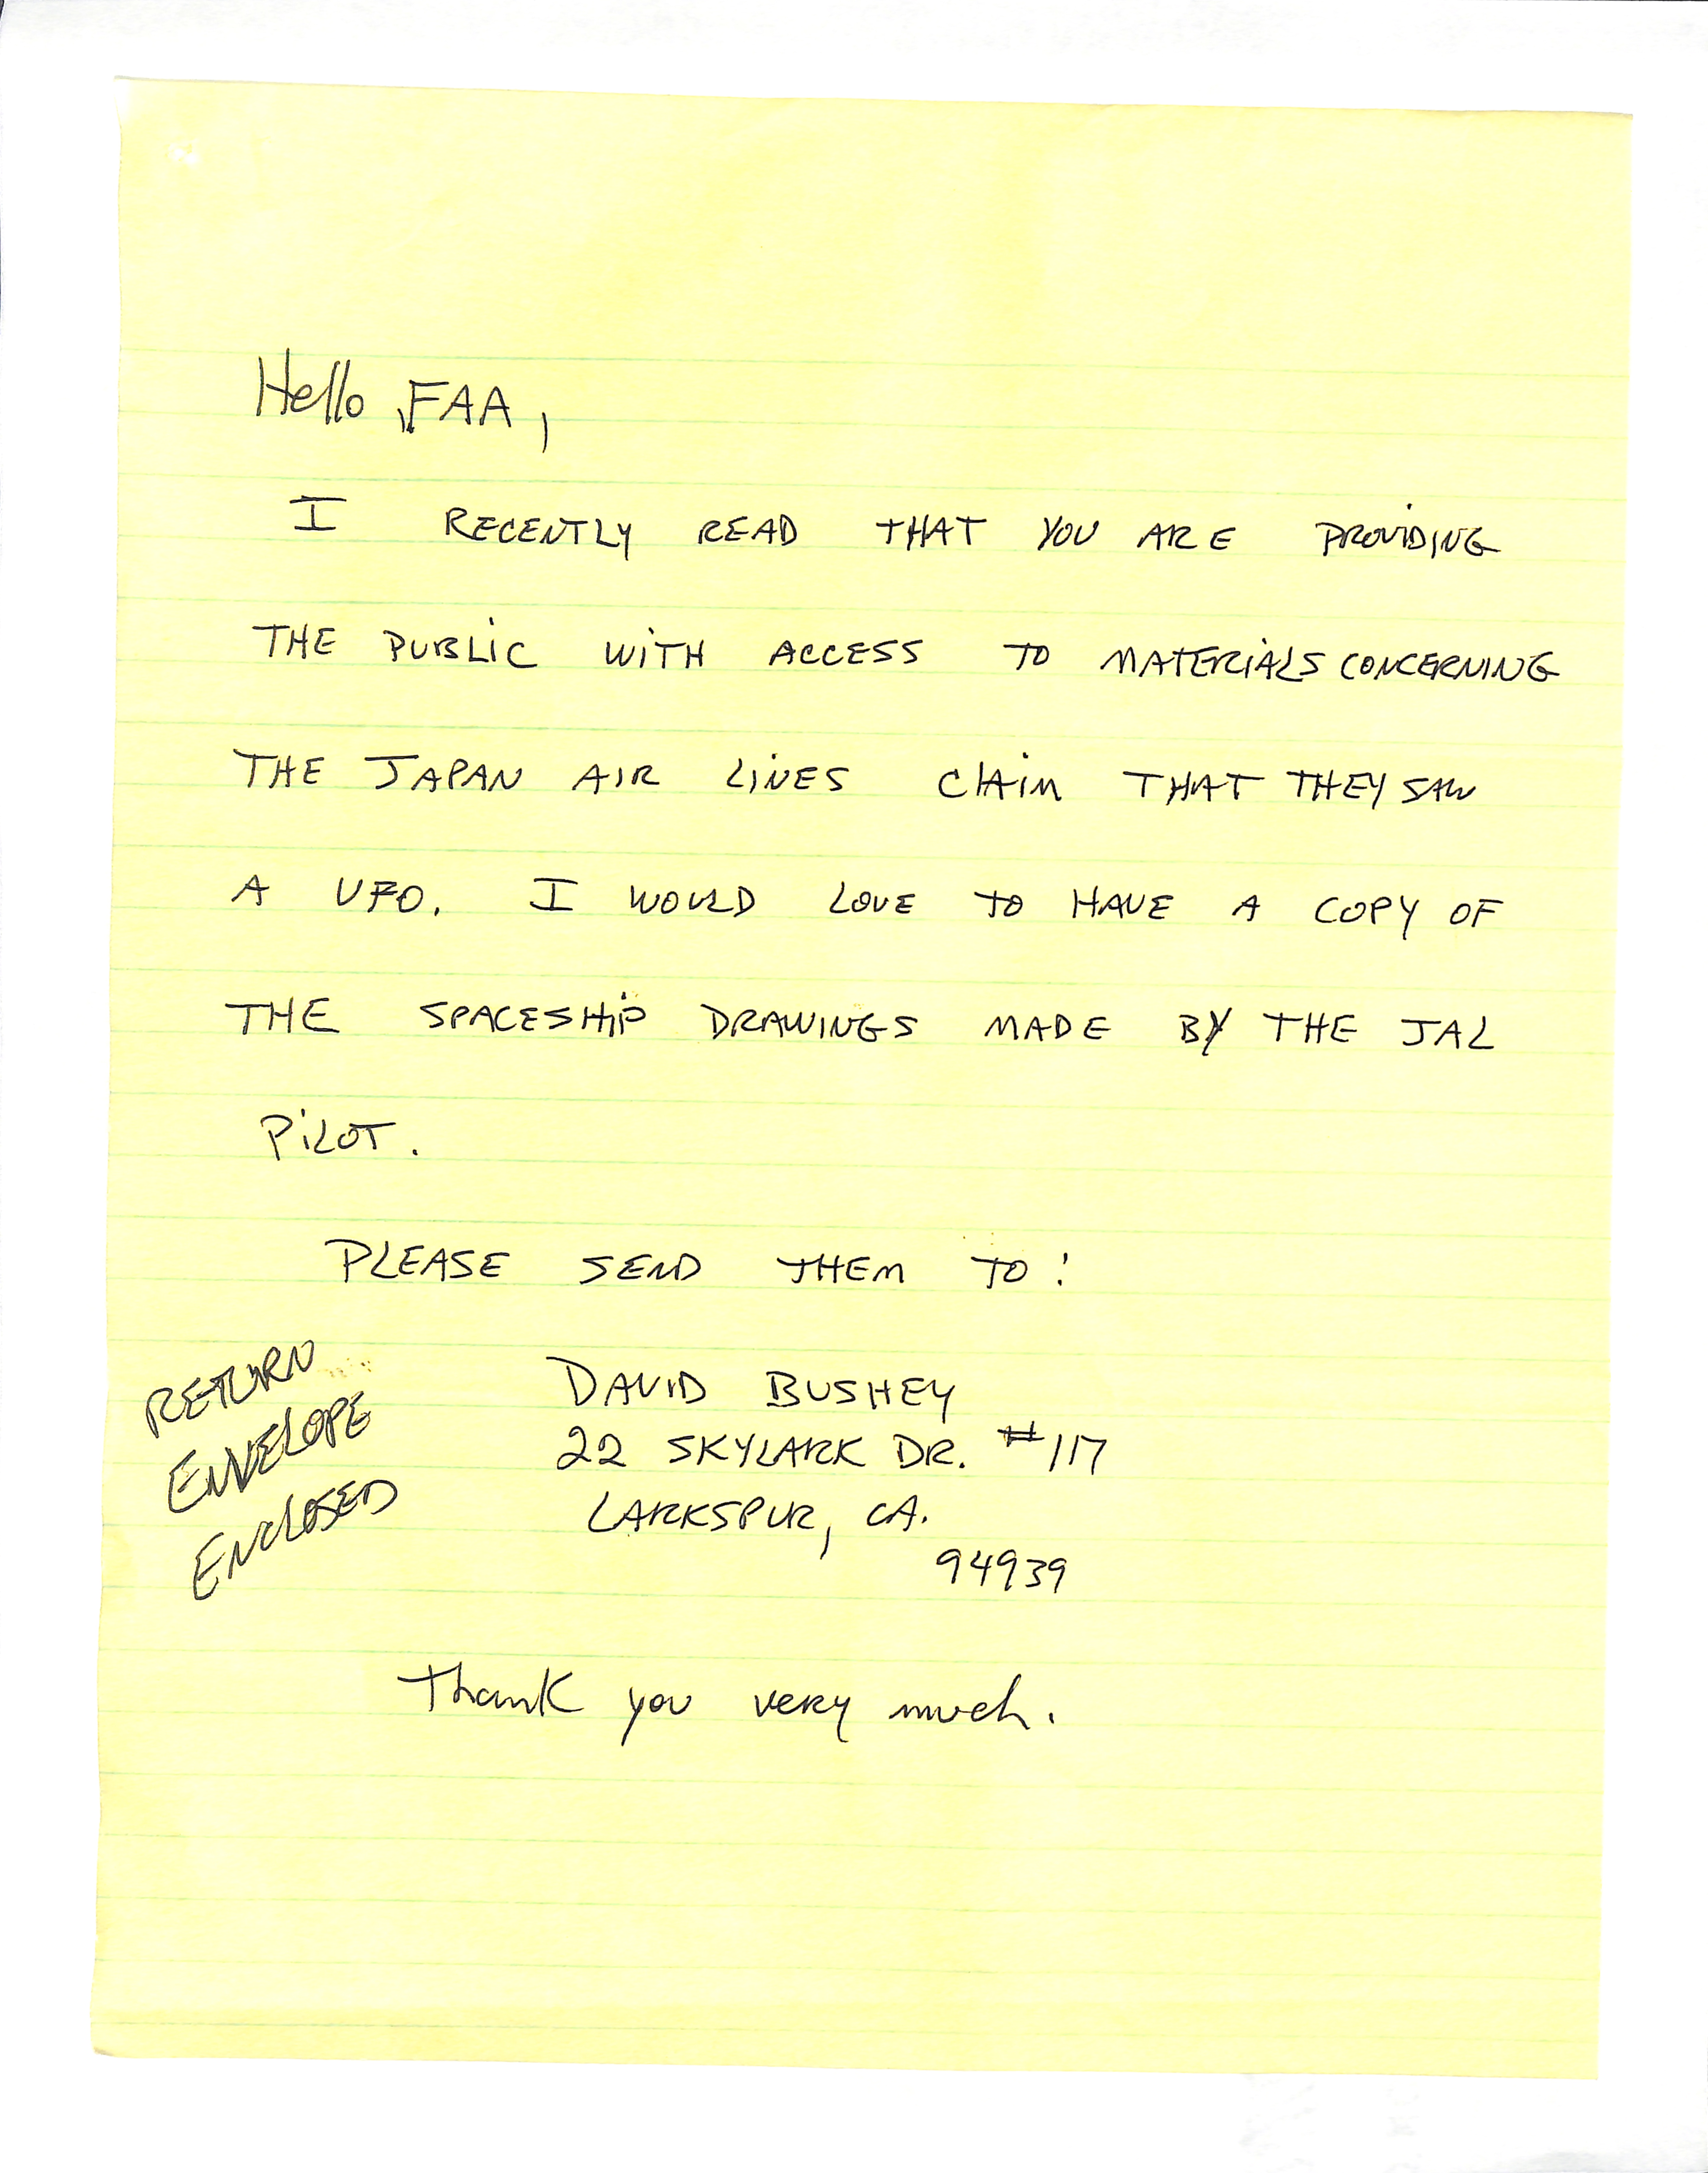 Hello, FAA,
I RECENTLY READ THAT YOU ARE PROVIDING
THE PUBLIC WITH ACCESS TO MATERIALS CONCERNING
THE JAPAN AIR LINES CLAIM THAT THEY SAW
A UFO. I WOULD LOVE TO HAVE A COPY OF
THE SPACESHIP DRAWINGS MADE BY THE JAL
PILOT.
PLEASE SEND THEM TO:
RETURN
ENVELOPE
ENCLOSED
DAVID BUSHEY
22 SKYLARK DR. #117
LARKSPUR, CA.
94939
Thank you very much.